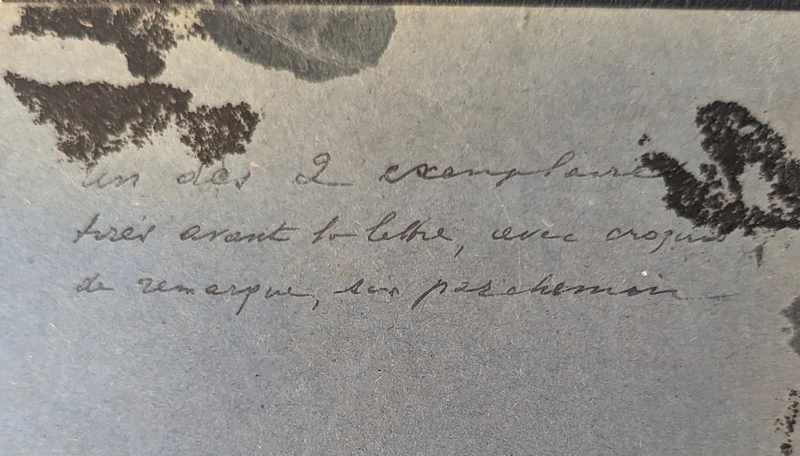 un des 2 exemplaires
tirés avant la lettre, avec croquis
de remarque, sur parchemin